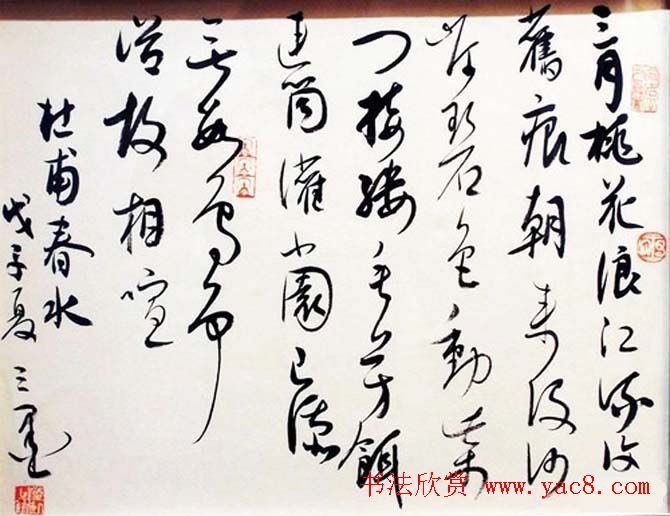 三月桃花浪江流復
舊痕朝來没沙
尾碧色動柴
门接縷垂芳餌
連筒灌小園已添
無數鳥爭
浴故相喧
杜甫春水
戊子夏三
书法欣赏 www.yac8.com